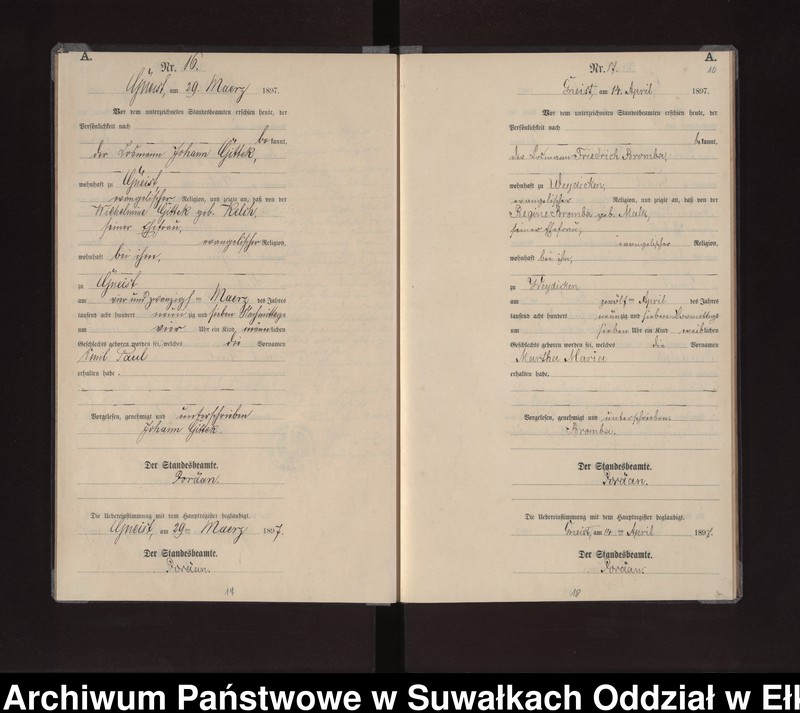 A.
Nr. 16.
Gneist, am 29. Maerz 1897.
Vor dem unterzeichneten Standesbeamten erschien heute, der
Persönlichkeit nach
bekannt,
der Losmann Johann Gittek,
wohnhaft zu Gneist
evangelischer Religion, und zeigte an, daß von der
Wilhelmine Gittek geb.
seiner Ehefrau,
evangelischer Religion,
wohnhaft bei ihm,
zu Gneist
am vier und zwanzigsten Maerz des Jahres
tausend acht hundert neunzig und sieben Nachmittags
um vier Uhr ein Kind männlichen
Geschlechts geboren worden sei, welches die Vornamen
Emil Paul
erhalten habe.
Vorgelesen, genehmigt und unterschrieben
Johann Gittek.
Der Standesbeamte.
Pordäan.
Die Uebereinstimmung mit dem Hauptregister beglaubigt.
Gneist, am 29ten Maerz 1897.
Der Standesbeamte.
Pordäan.
17
A.
10
Nr. 17.
Gneist, am 14. April 1897.
Vor dem unterzeichneten Standesbeamten erschien heute, der
Persönlichkeit nach
bekannt,
der Losmann Friedrich Bromba,
wohnhaft zu Weydicken,
evangelischer Religion, und zeigte an, daß von der
Regine Bromba geb.
seiner Ehefrau,
evangelischer Religion,
wohnhaft bei ihm,
zu Weydicken
am zwölften April des Jahres
tausend acht hundert neunzig und sieben Vormittags
um sieben Uhr ein Kind weiblichen
Geschlechts geboren worden sei, welches die Vornamen
Martha Maria
erhalten habe.
Vorgelesen, genehmigt und unterschrieben
Bromba.
Der Standesbeamte.
Pordäan.
Die Uebereinstimmung mit dem Hauptregister beglaubigt.
Gneist, am 14ten April 1897.
Der Standesbeamte.
Pordäan.
18
Archiwum Państwowe w Suwałkach Oddział w Ełk